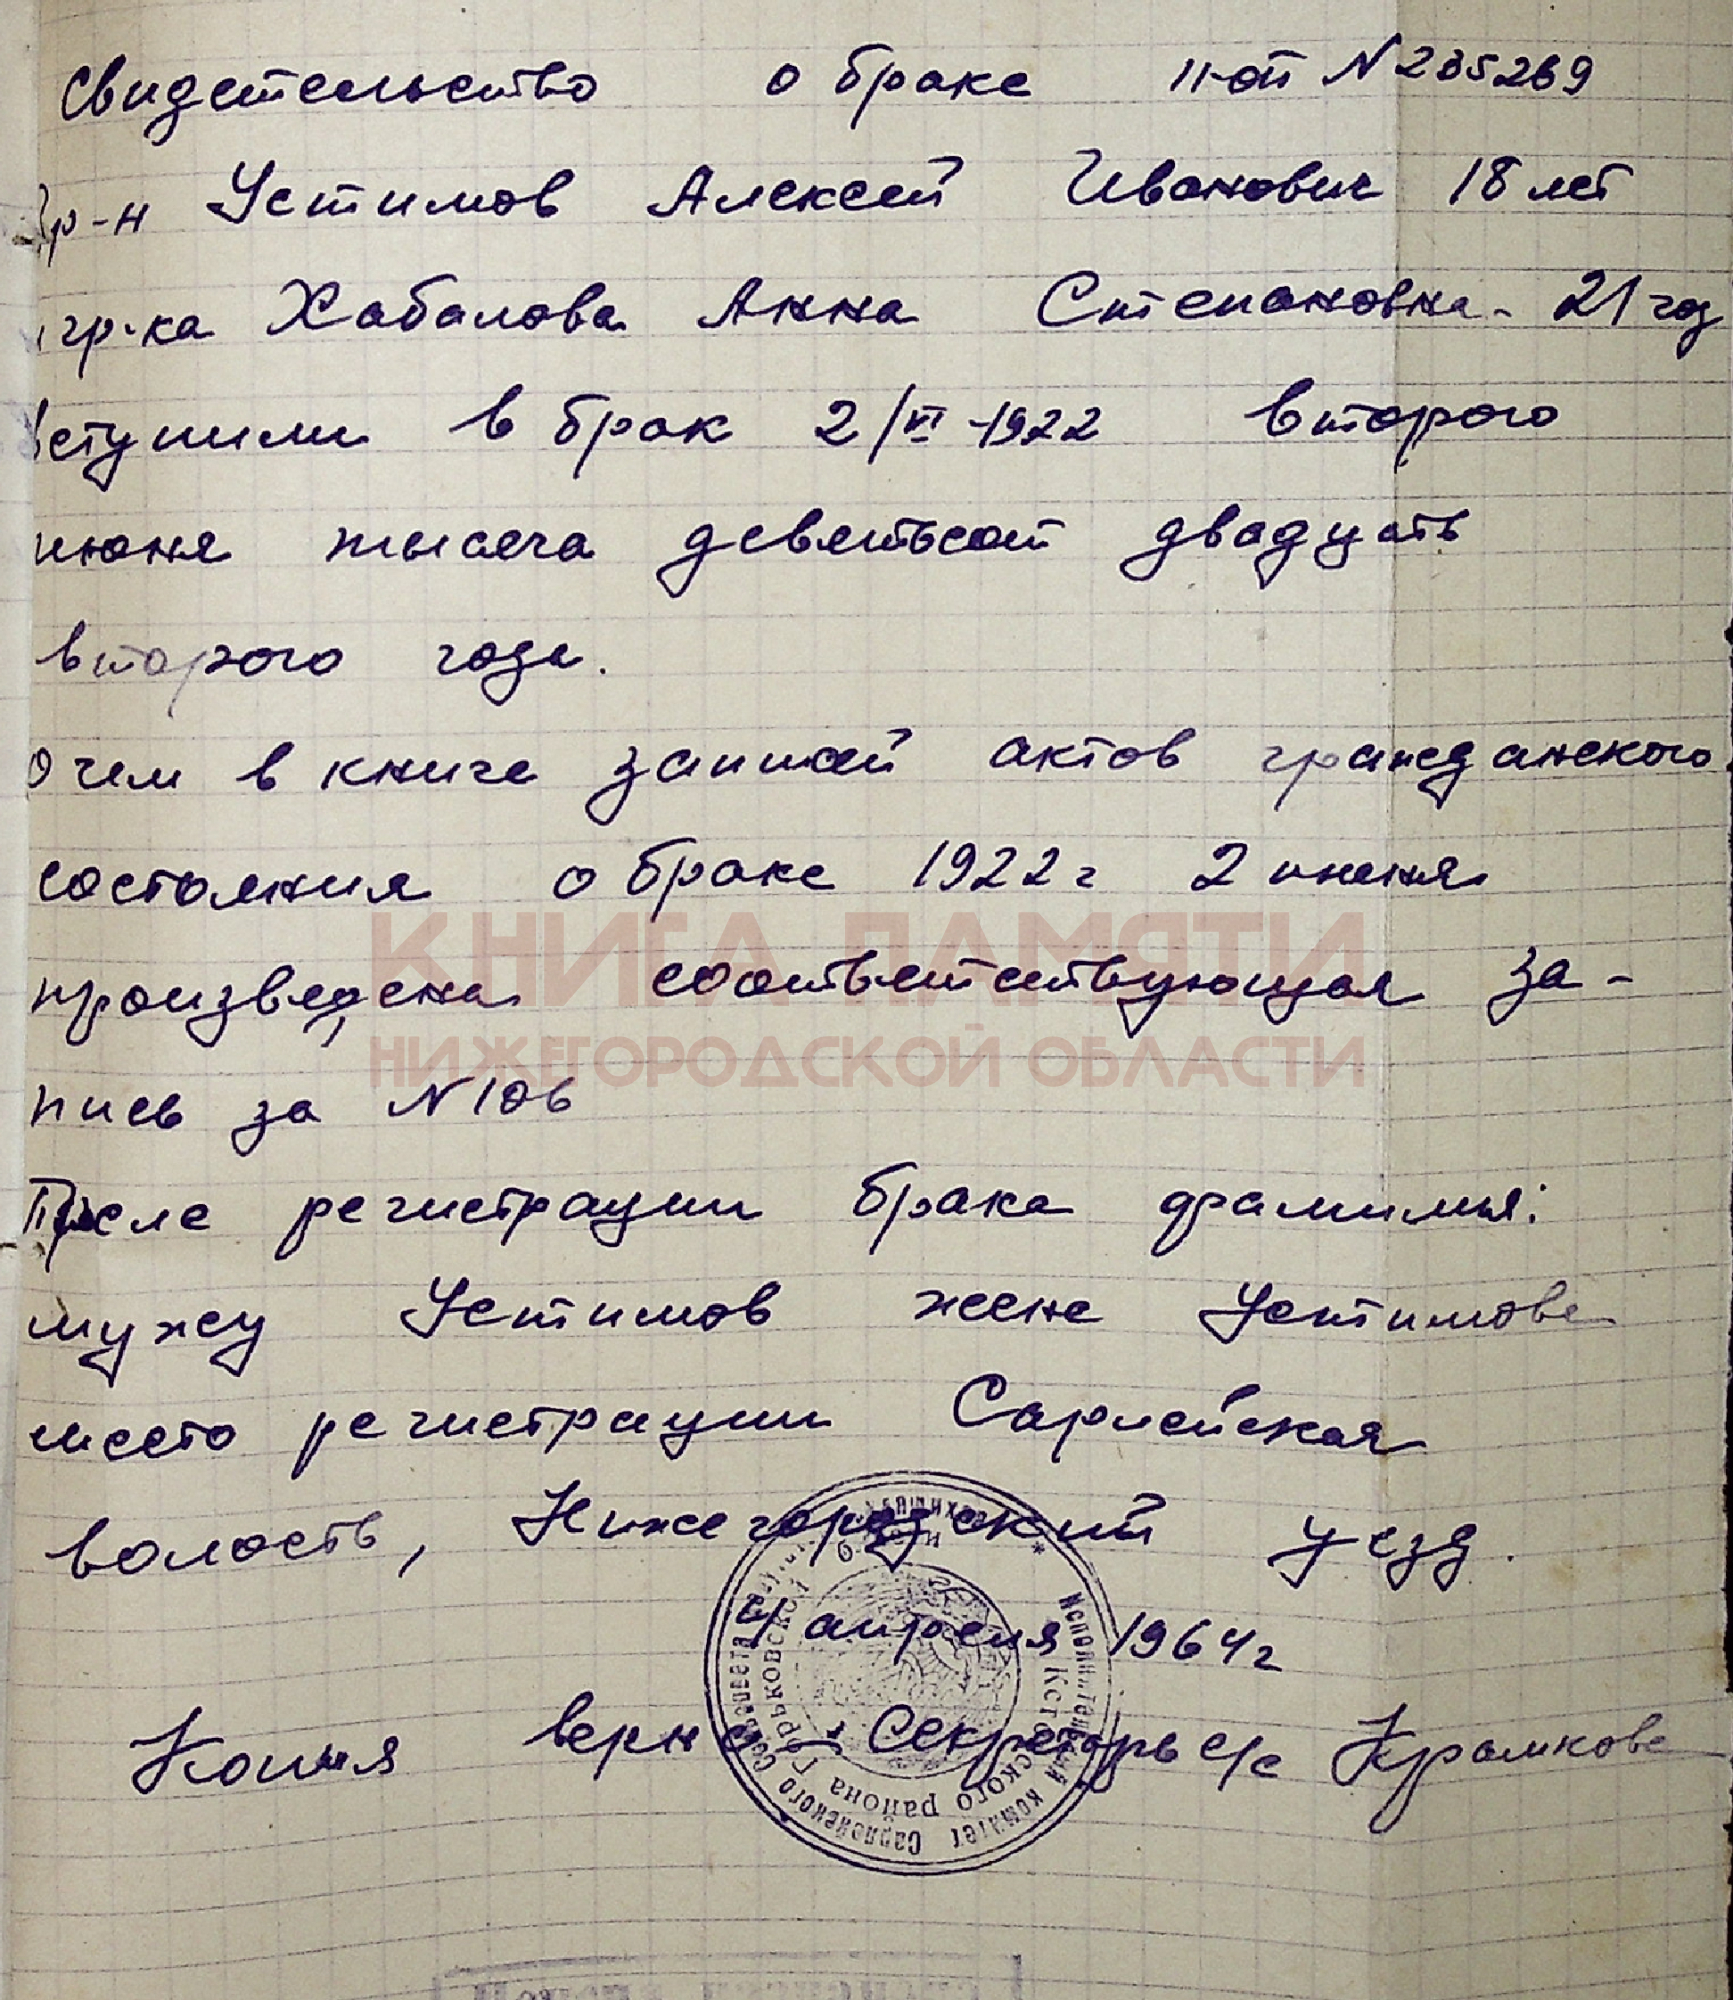 Свидетельство о браке II-ОП N 235269
Гр-н Устимов Алексей Иванович 18 лет
и гр-ка Хабалова Анна Степановна - 21 год
вступили в брак 2/VI-1922 второго
июня тысяча девятьсот двадцать
второго года.
О чем в книге записей актов гражданского
состояния о браке 1922 г 2 июня
КНИГА ПАМЯТИ
произведена соответствующая за-
НИЖЕГОРОДСКОЙ ОБЛАСТИ
пись за N 106
После регистрации брака фамилия:
мужу Устимов жене Устимова
место регистрации Сарлейская
волость, Нижегородский уезд.
апреля 1964 г
Копия верна: Секретарь с/с Крамкова
Исполнительный комитет Сарлейского Сельсовета
Кстовского района Горьковской